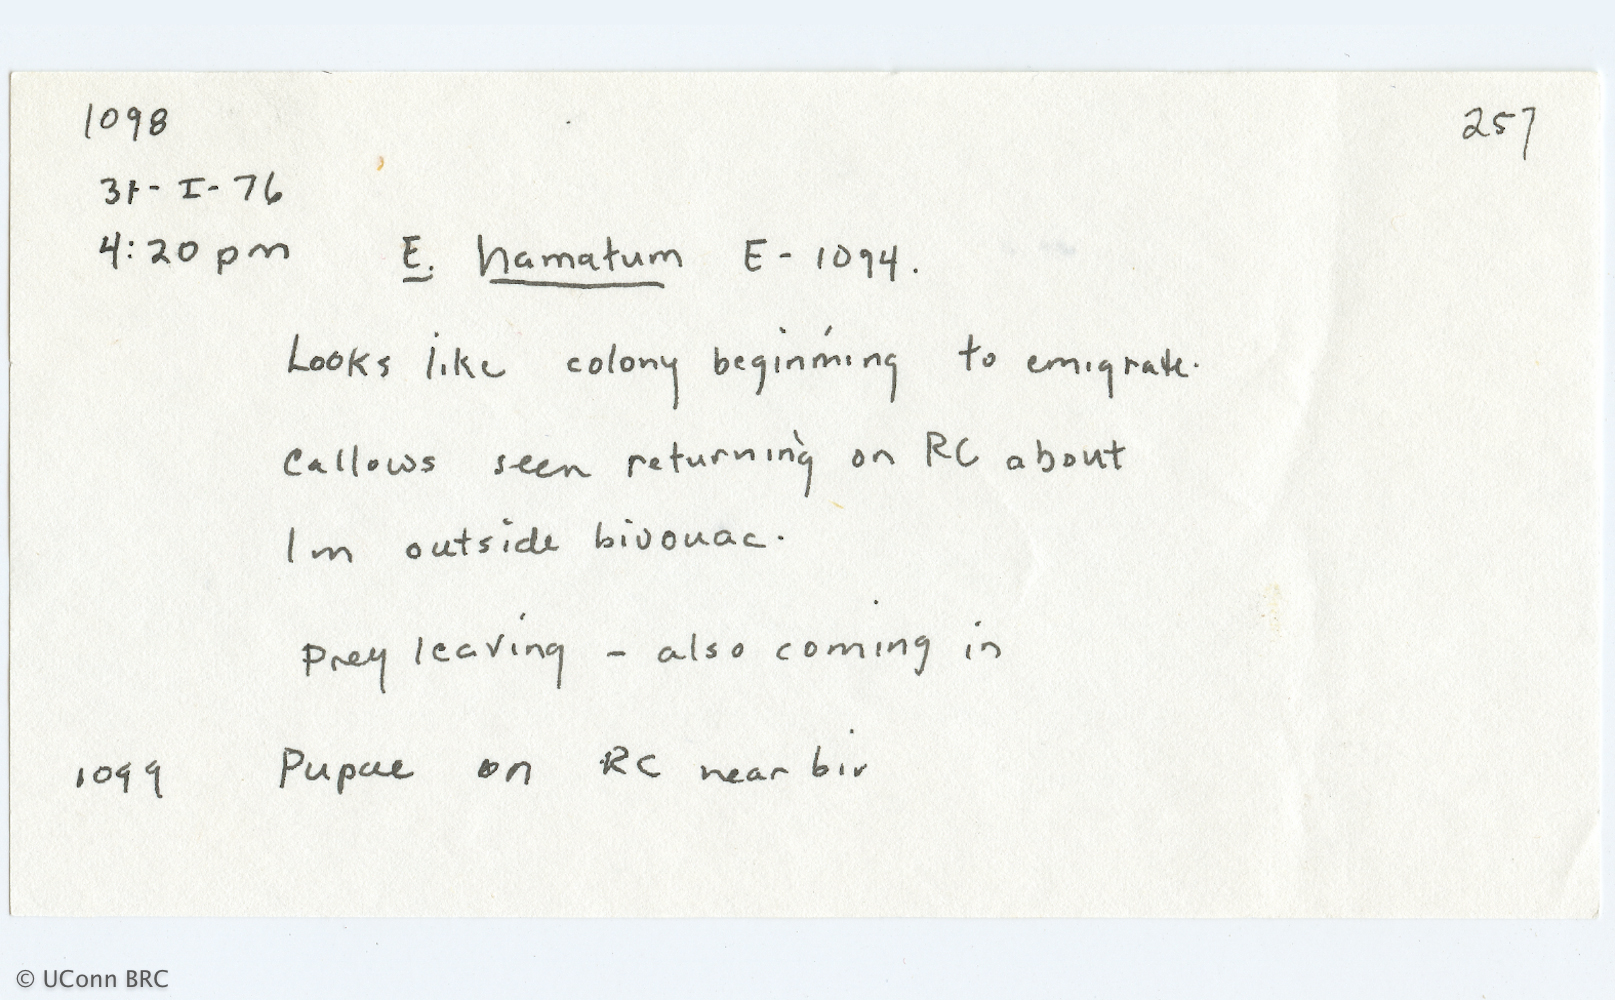 1098 257
31-I-76
4:20 pm E. hamatum E-1094.
Looks like colony beginning to emigrate.
Callows seen returning on RC about
1m outside bivouac.
Prey leaving - also coming in
1099 Pupae on RC near biv
© UConn BRC